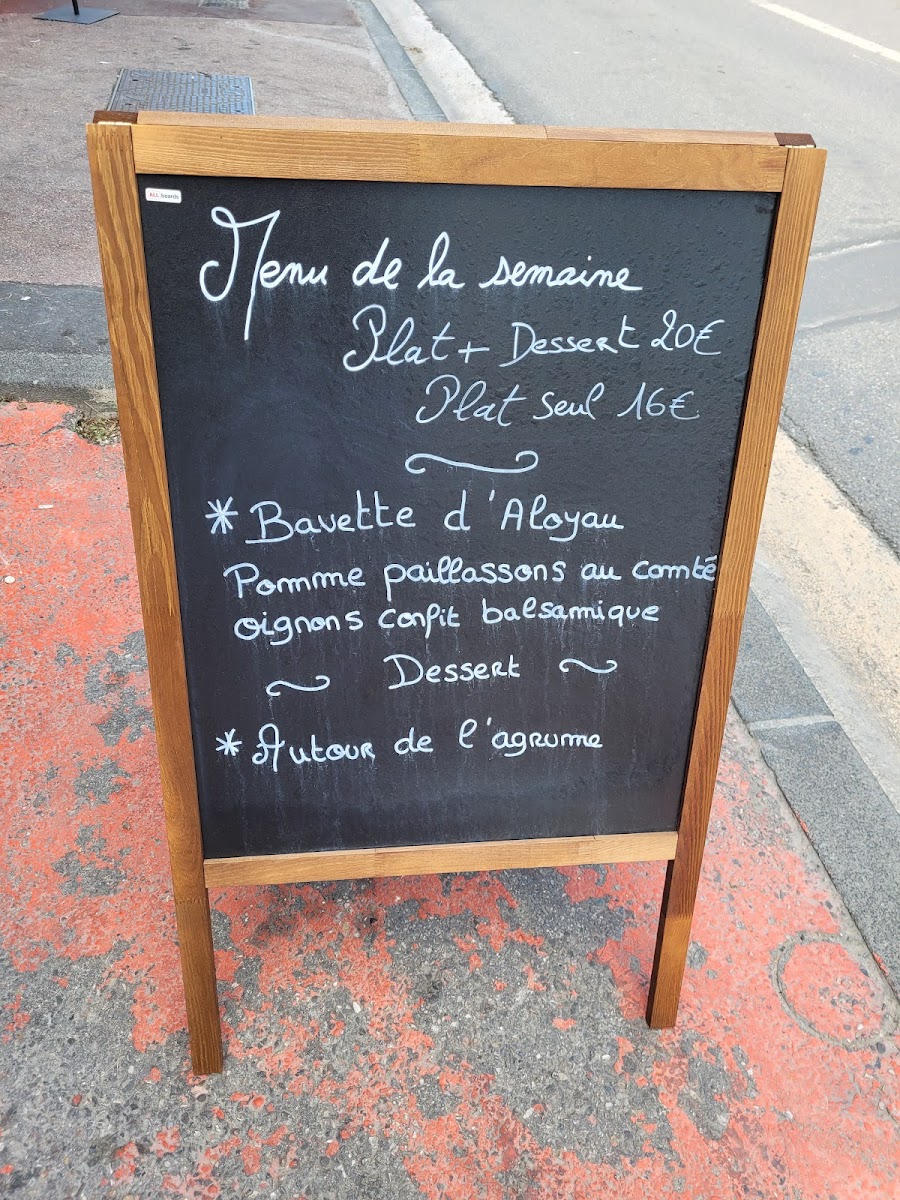 ALL boards
Menu de la semaine
Plat + Dessert 20€
Plat seul 16€
* Bavette d'Aloyau
Pomme paillassons au comté
oignons confit balsamique
~ Dessert ~
* Autour de l'agrume